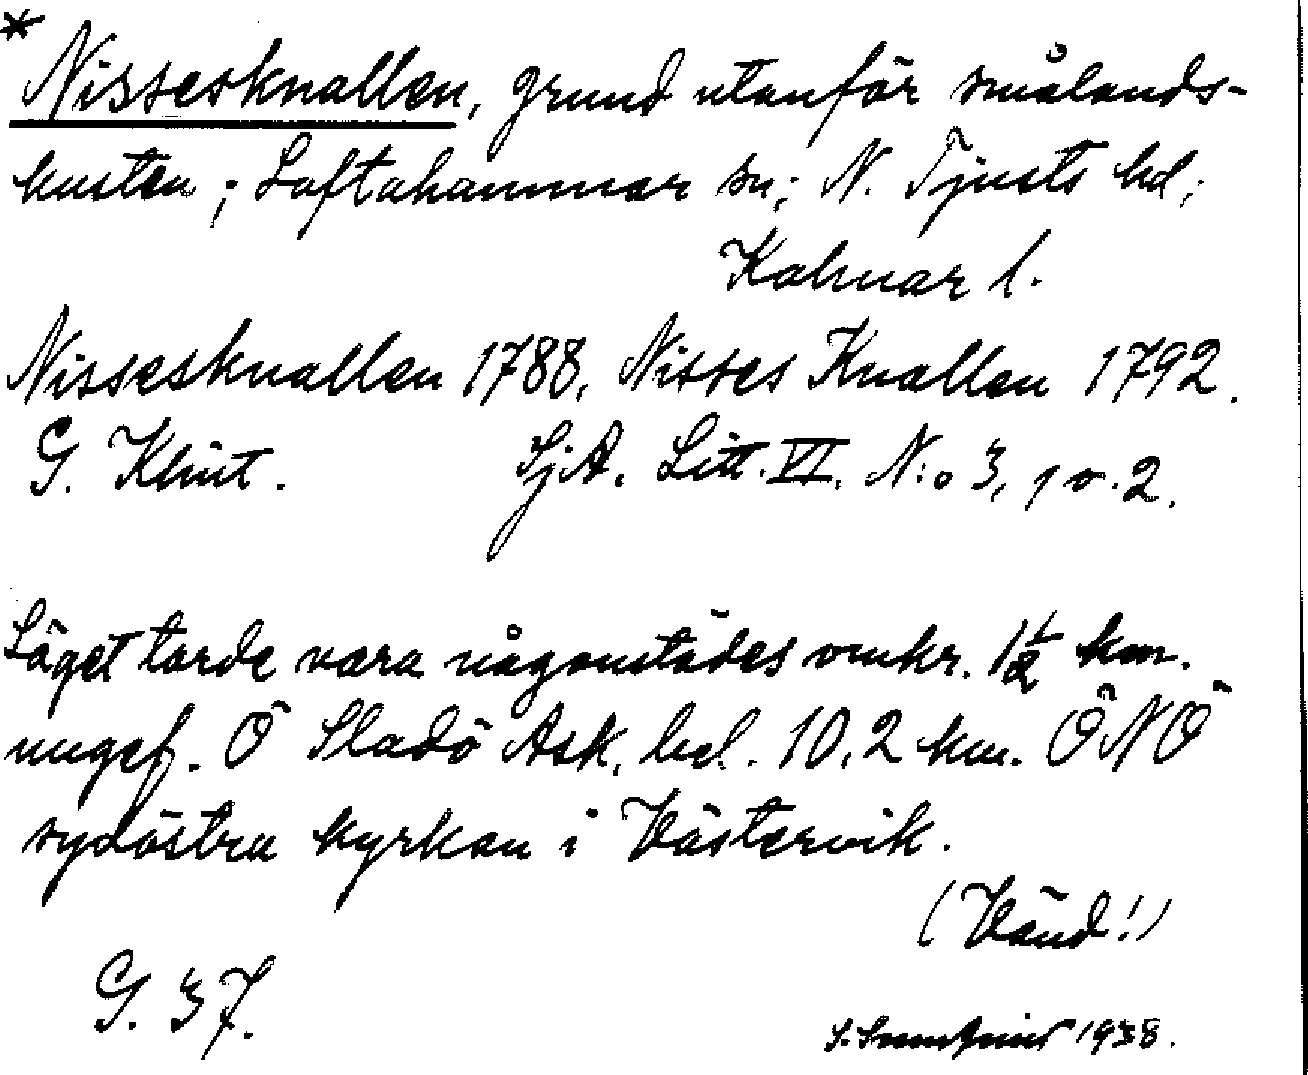 * Nissesknallen, grund utanför smålands-
kusten; Loftahammar sn; N. Tjusts hd;
Kalmar l.
Nissesknallen 1788, Nisses Knallen 1792.
G. Klint. SjA. Litt. VI. N:o 3, 1 o. 2.
Läget torde vara någonstädes omkr. 1 1/2 km.
ungef. Ö Sladö Ask, bel. 10,2 km. ÖNÖ
sydöstra kyrkan i Västervik.
(Vänd!)
G. 37.
S. 1938.